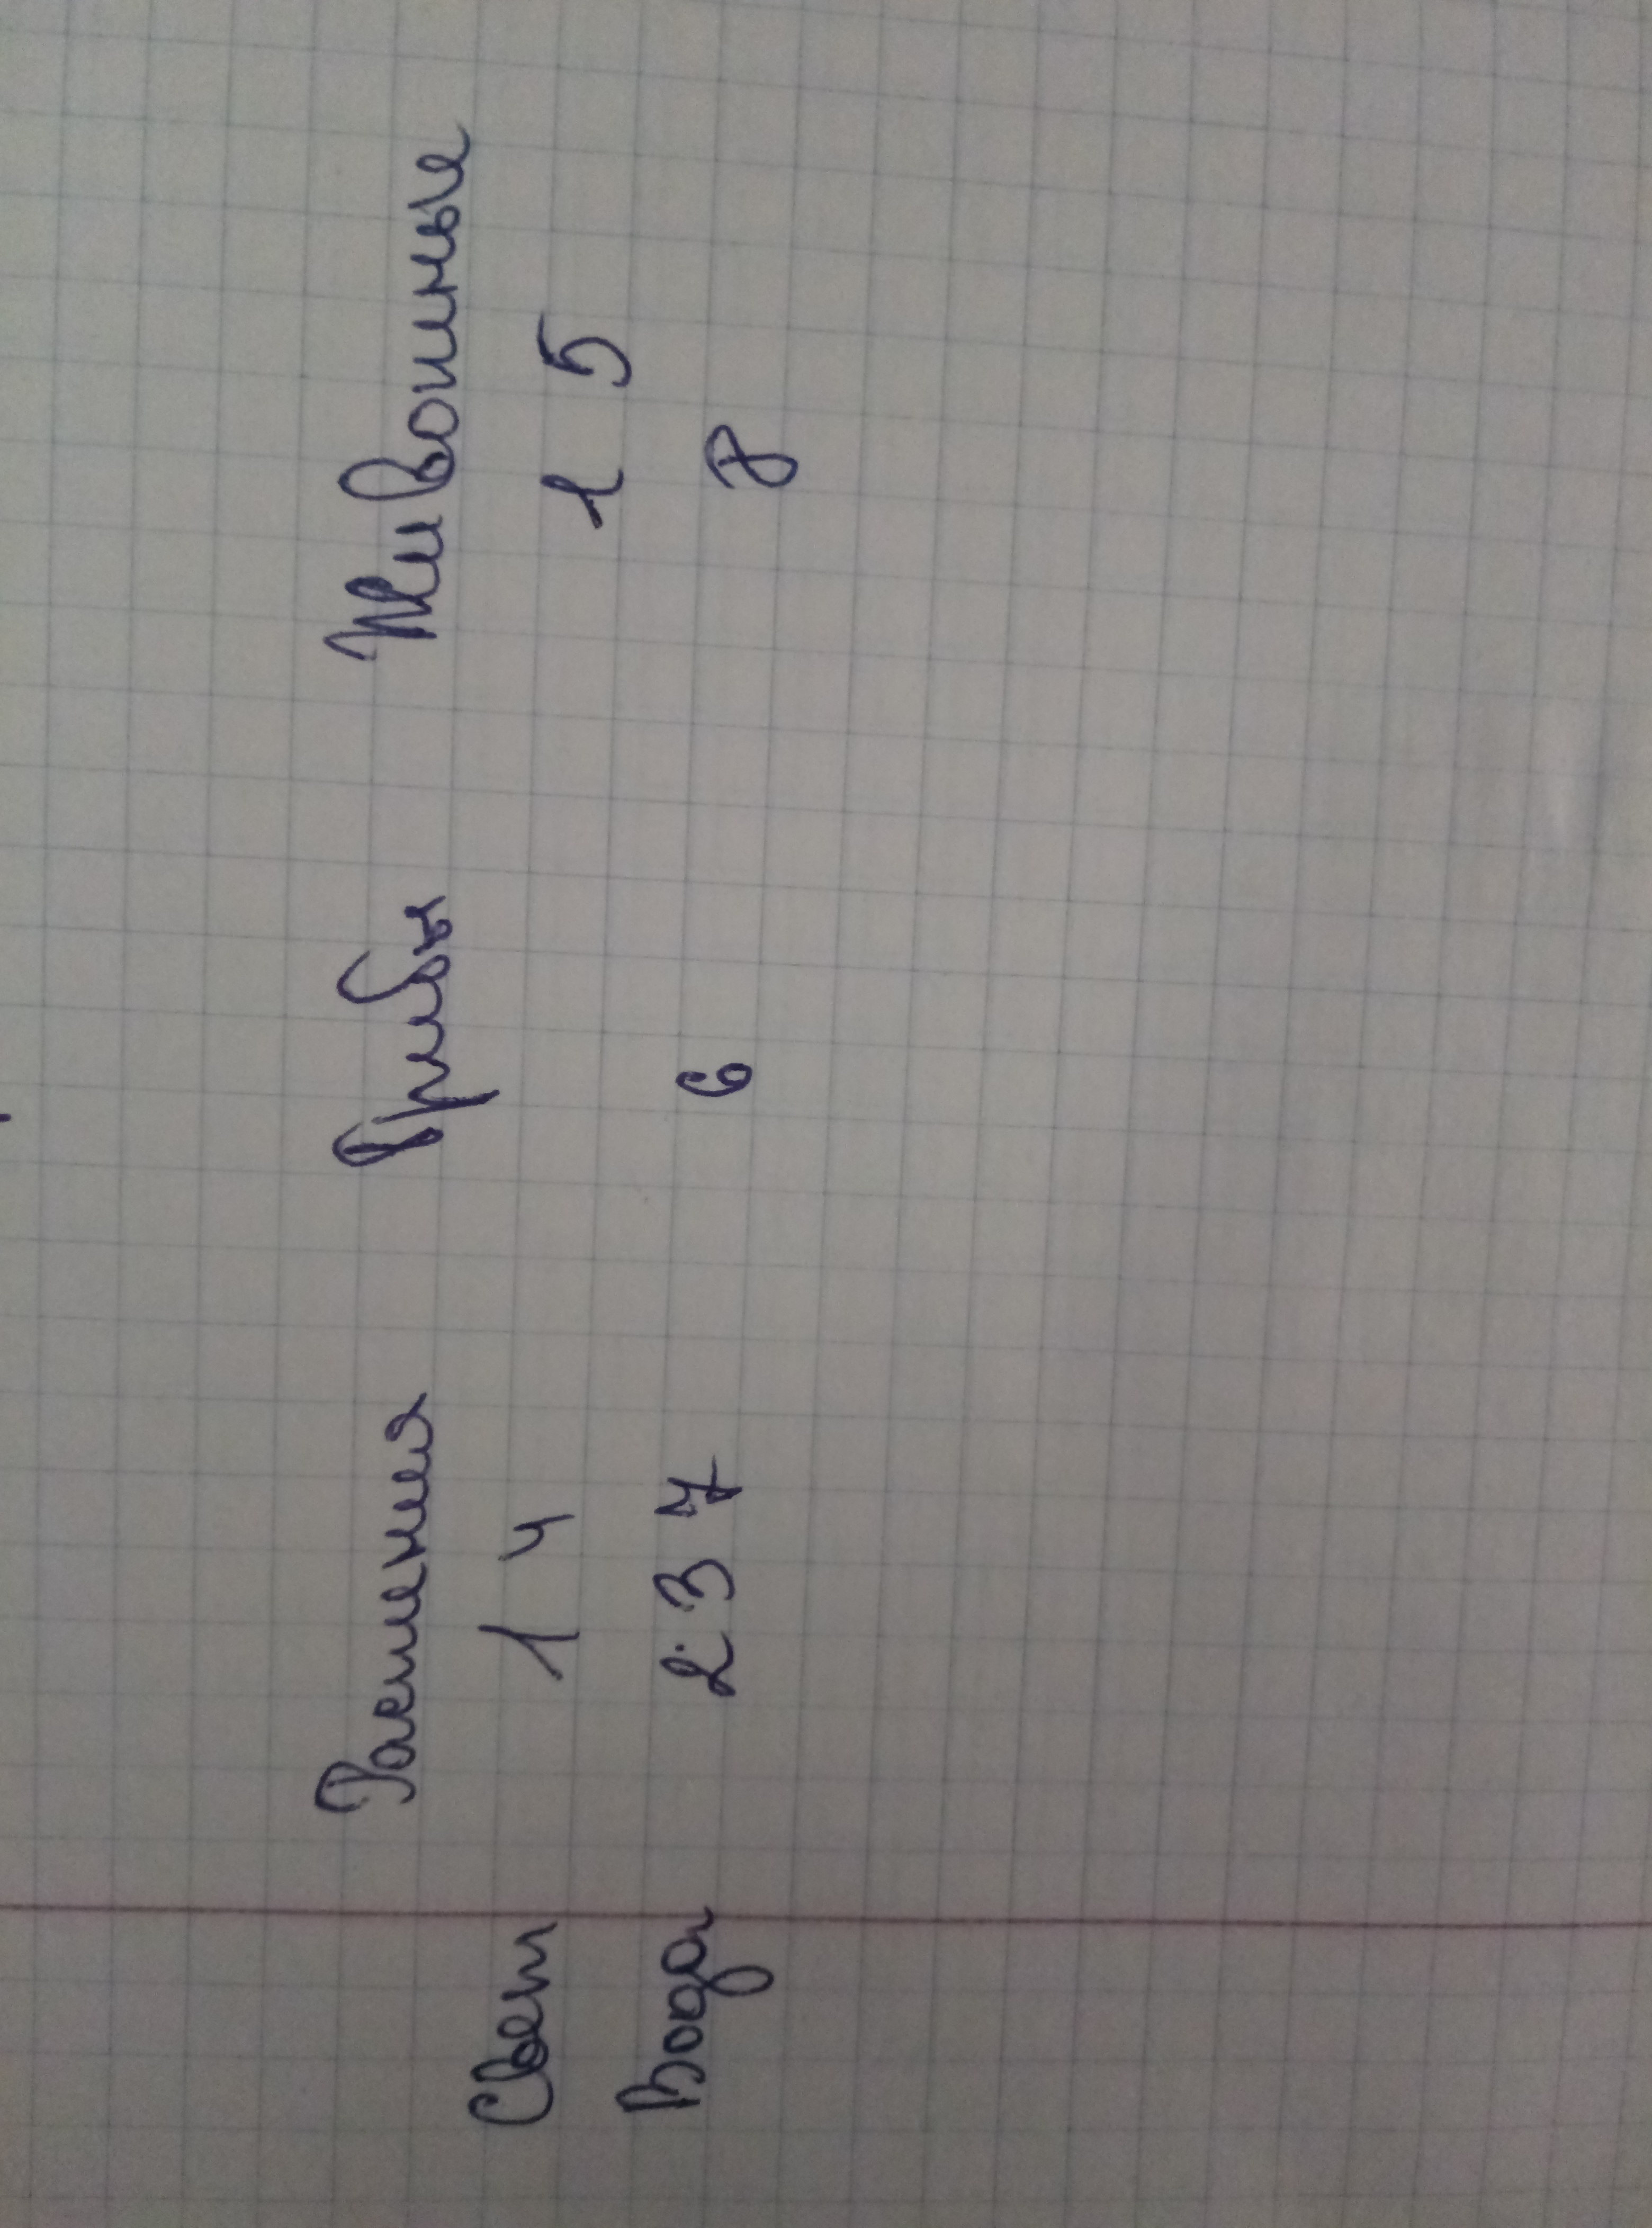 Растения Грибы Животные
Свет 1 4 1 5
Вода 2. 3 7 6 8